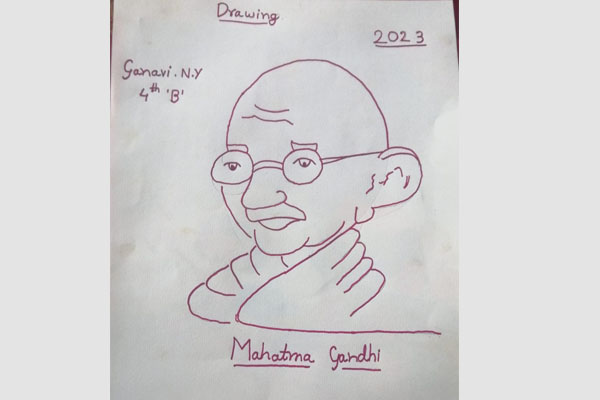 Drawing
2023
Ganavi.N.Y
4th 'B'
Mahatma Gandhi